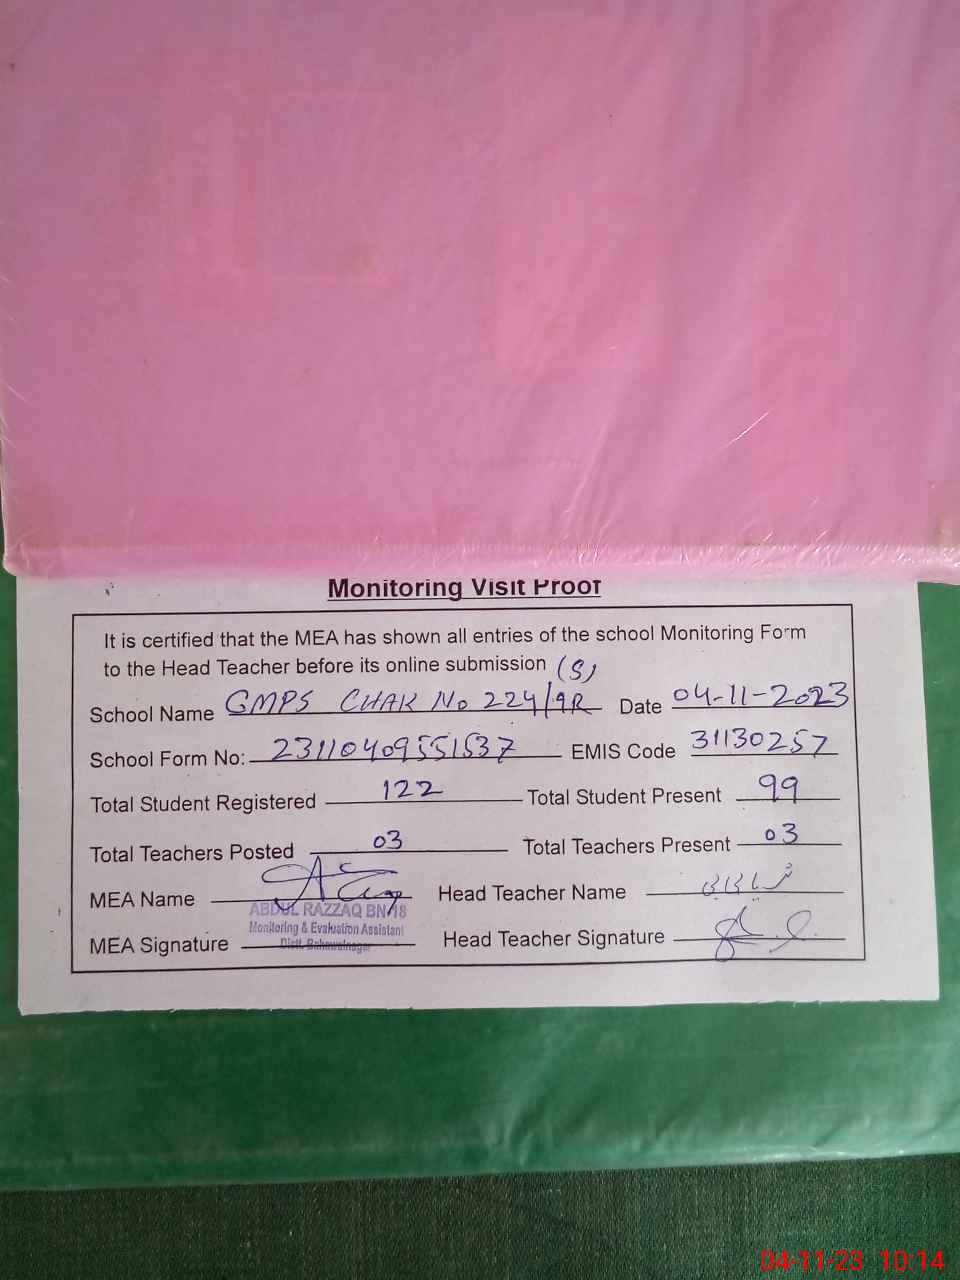 Monitoring Visit Proof
It is certified that the MEA has shown all entries of the school Monitoring Form
to the Head Teacher before its online submission (S)
School Name GMPS CHAK No 224/9R Date 04-11-2023
School Form No: 23110409551537 EMIS Code 31130257
Total Student Registered 122 Total Student Present 99
Total Teachers Posted 03 Total Teachers Present 03
MEA Name Head Teacher Name
ABDUL RAZZAQ BN-18
Monitoring & Evaluation Assistant
Distt. Bahawalnagar
MEA Signature Head Teacher Signature
04-11-23 10:14